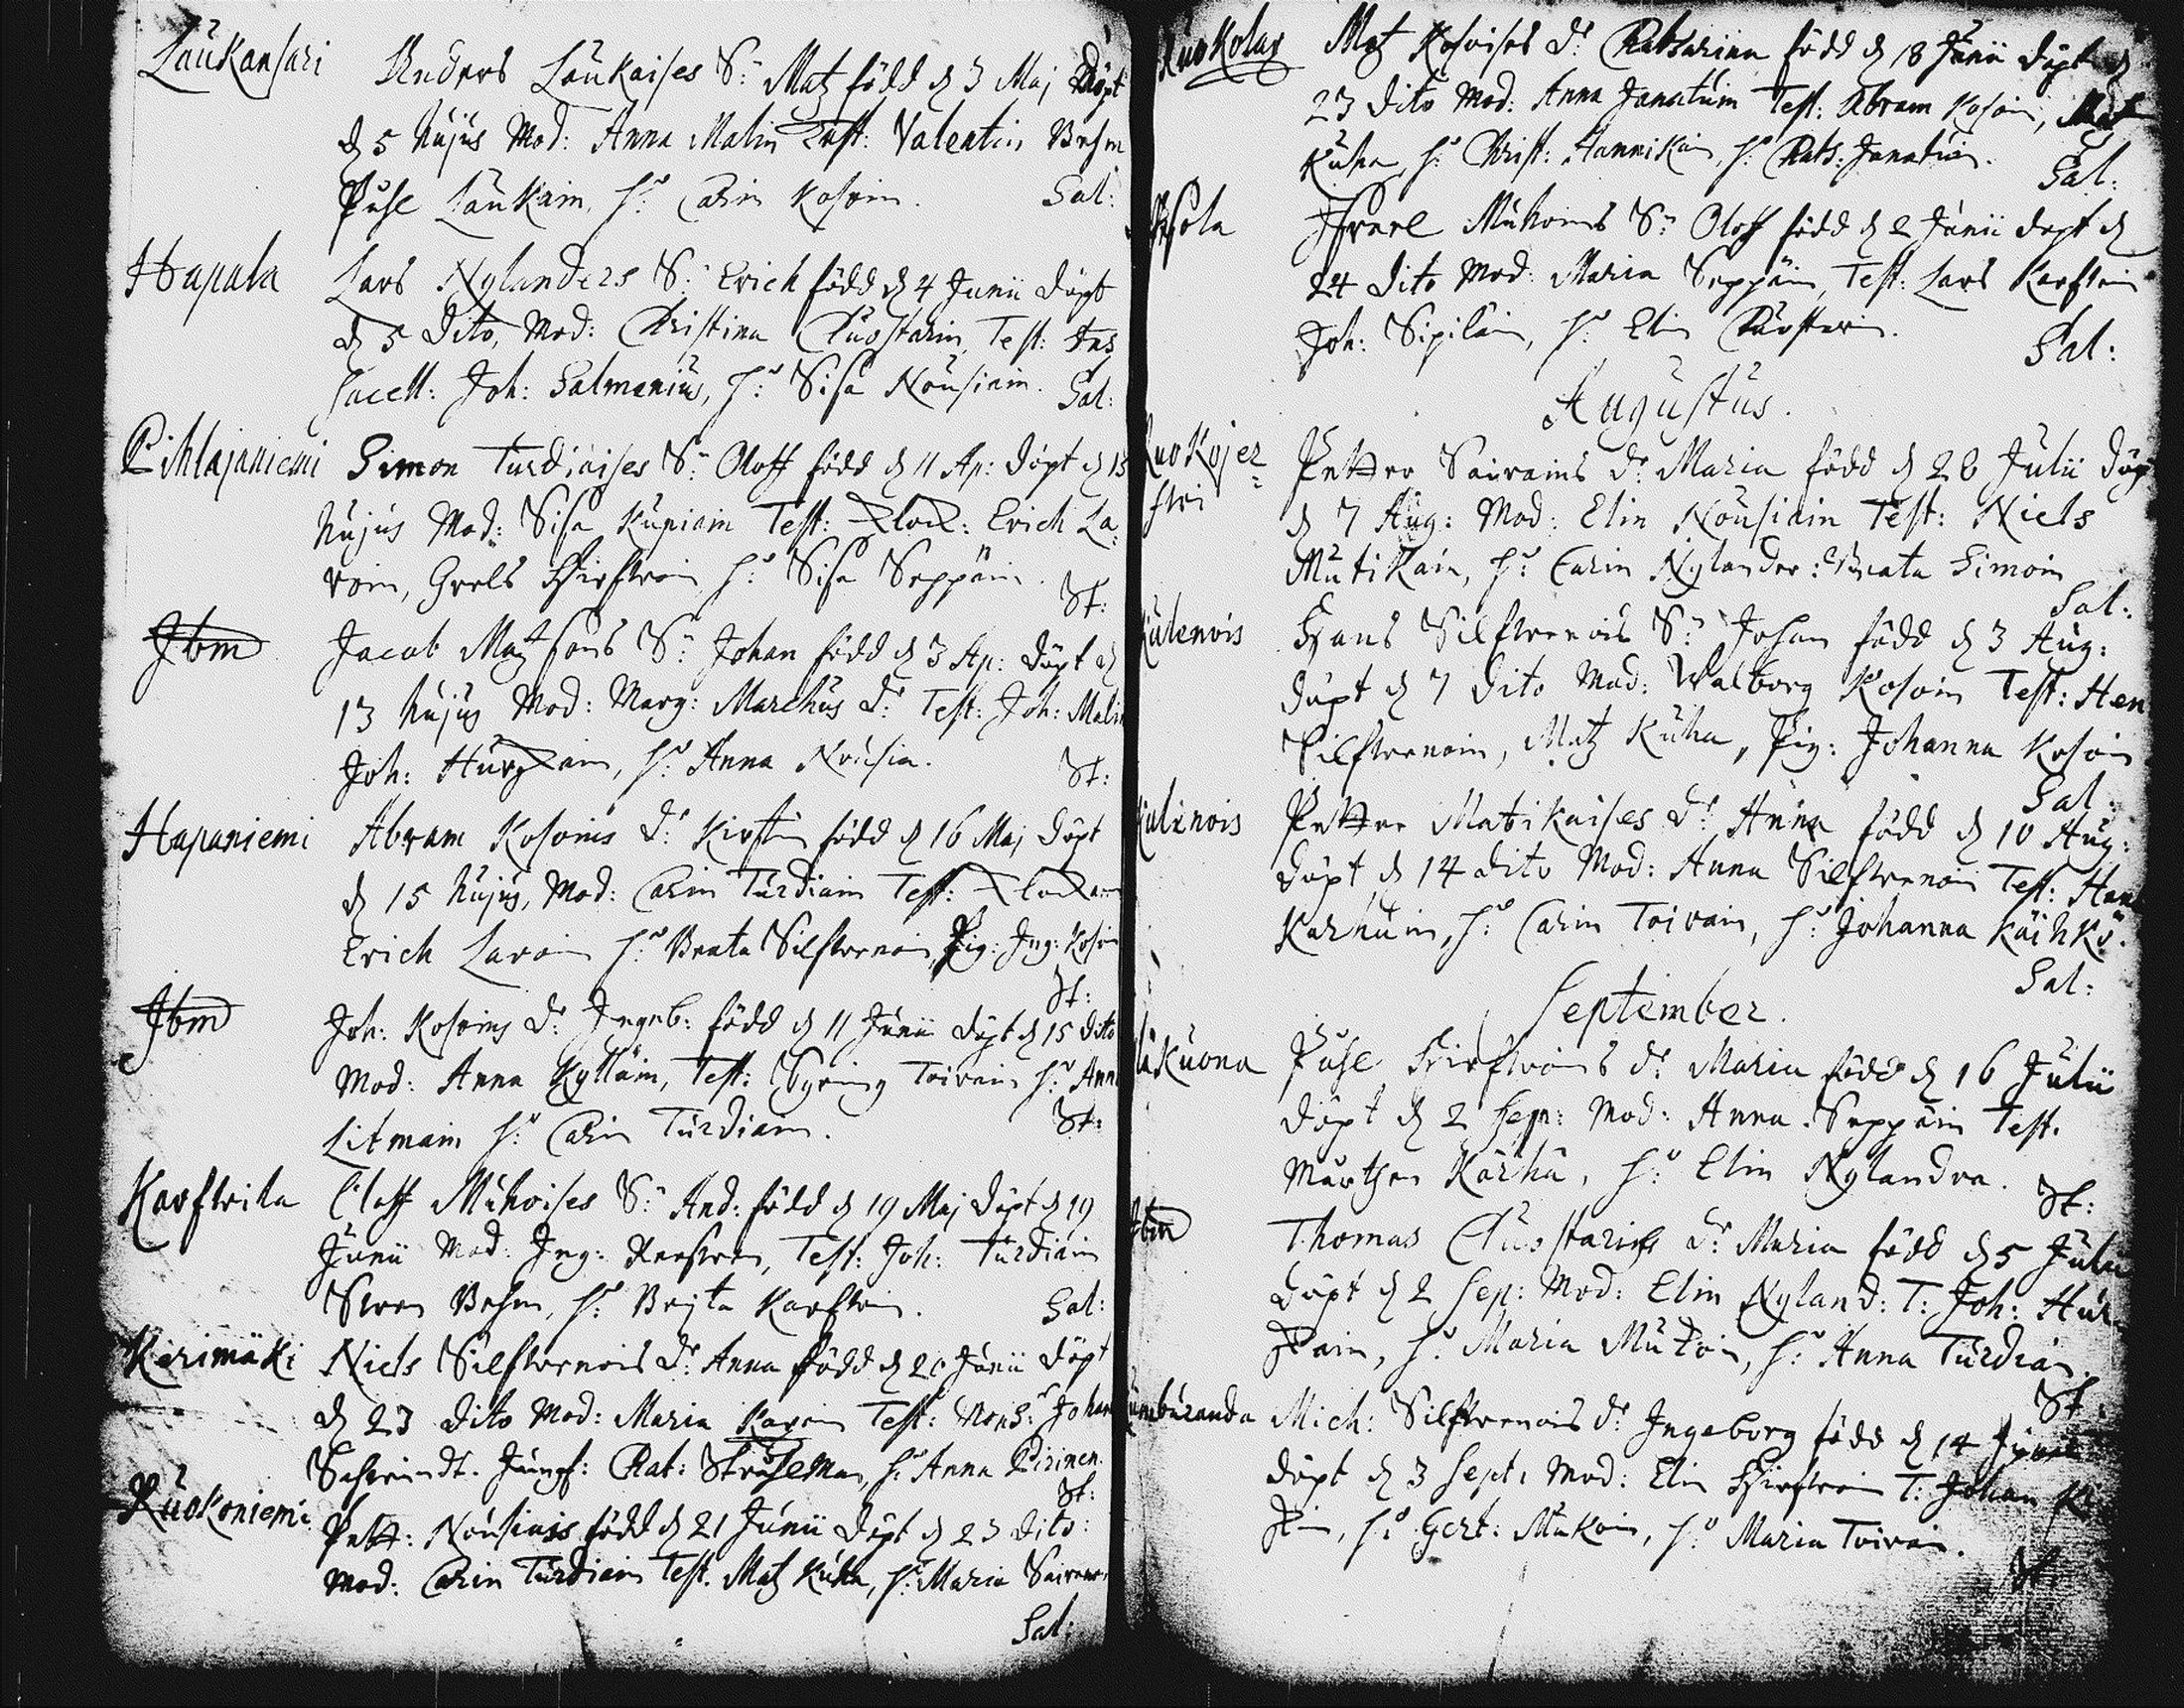 Laukansari Anders Laukaises S: Matz född d 3 Maj Döpt
d 5 hujus Mod: Anna Malin Test: Valentin Behm
Påhl Laukain, h: Carin Kosoin. Sal:
Hapala Lars Nylanders S: Erich född d 4 Junii döpt
d 5 dito, Mod: Christina Cluostarin, Test:
Sacell: Joh: Salmenius, h: Sisa Nousiain. Sal:
Pihlajaniemi Simon Turdiaises S: Oloff född d 11 Ap: döpt d 13
hujus Mod: Sisa Kupiain Test: Erich La
roin, Grels Hirfwoin h: Sisa Seppäin. St:
Ibm Jacob Matzsons S: Johan född d 3 Ap: döpt d
13 hujus Mod: Marg: Marchus d: Test: Joh: Malin
Joh: Hurskain, h: Anna Nousia. St:
Hapaniemi Abram Kosoins d: Kirstin född d 16 Maj döpt
d 15 hujus, Mod: Carin Turdiain Test:
Erich Laroin h: Beata Silfwenoin, Pig: Ing: Kosoin
St:
Ibm Joh: Kosoins d: Ingeb: född d 11 Junii döpt d 15 dito
Mod: Anna Kylläin, Test: Toivain h: Anna
Litmain h: Carin Turdiain. St:
Karfwila Oloff Muhoises S: And: född d 19 Maj döpt d 19
Junii Mod: Ing: Test: Joh: Turdiain
Sven Behm, h: Brijta Karfwin. Sal:
Kerimäki Niels Silfwenois d: Anna född d 20 Junii döpt
d 23 dito Mod: Maria Karoin Test: Mons: Johan
Jungf: Cat: h: Anna Pirinen.
St:
Ruokoniemi Pett: Nousiais född d 21 Junii döpt d 23 dito:
Mod: Carin Turdiain Test. Matz Kuha, h: Maria Sairanen
Sal:
Ruokolax Matz Kosoises d: Catharina född d 18 Junii döpt d
23 dito Mod: Anna Janatuin Test: Abram Kosoin, Matz
Kuha, h: Christ: Hannikain, h: Cath: Janatuin. Sal:
Israel Muhoins S: Oloff född d 2 Junii döpt d
24 dito Mod: Maria Seppäin, Test: Lars Karfwin
Joh: Sipiläin, h: Elin Cluostarin. Sal:
Augustus.
Ruokojer= Petter Sairains d: Maria född d 28 Julii döpt
fwi d 7 Aug: Mod: Elin Nousiain Test: Niels
Mutikain, h: Carin Nylander: Beata Simoin
Sal:
Kulenois Hans Silfwenois S: Johan född d 3 Aug:
döpt d 7 dito Mod: Walborg Kosoin Test: Hen
Silfwenoin, Matz Kuha, Pig: Johanna Kosoin
Sal:
Kulenois Petter Matikaises d: Anna född d 10 Aug:
döpt d 14 dito Mod: Anna Silfwenoin Test: Hans
Karhuin, h: Carin Toivain, h: Johanna Käihkö.
Sal:
September.
Påhl Hirfwois d: Maria född d 16 Julii
döpt d 2 Sep: Mod: Anna Seppäin Test.
Mårthen Karhu, h: Elin Nylandra. St:
Ibm Thomas Cluostaris d: Maria född d 5 Julii
döpt d 2 Sep: Mod: Elin Nyland: T: Joh: Hur
skain, h: Maria Mutoin, h: Anna Turdiain.
St:
Mich: Silfwenois d: Ingeborg född d 14
döpt d 3 Sept: Mod: Elin Hirfwoin T: Johan
h: Gert: Mukoin, h: Maria Toivain.
St: